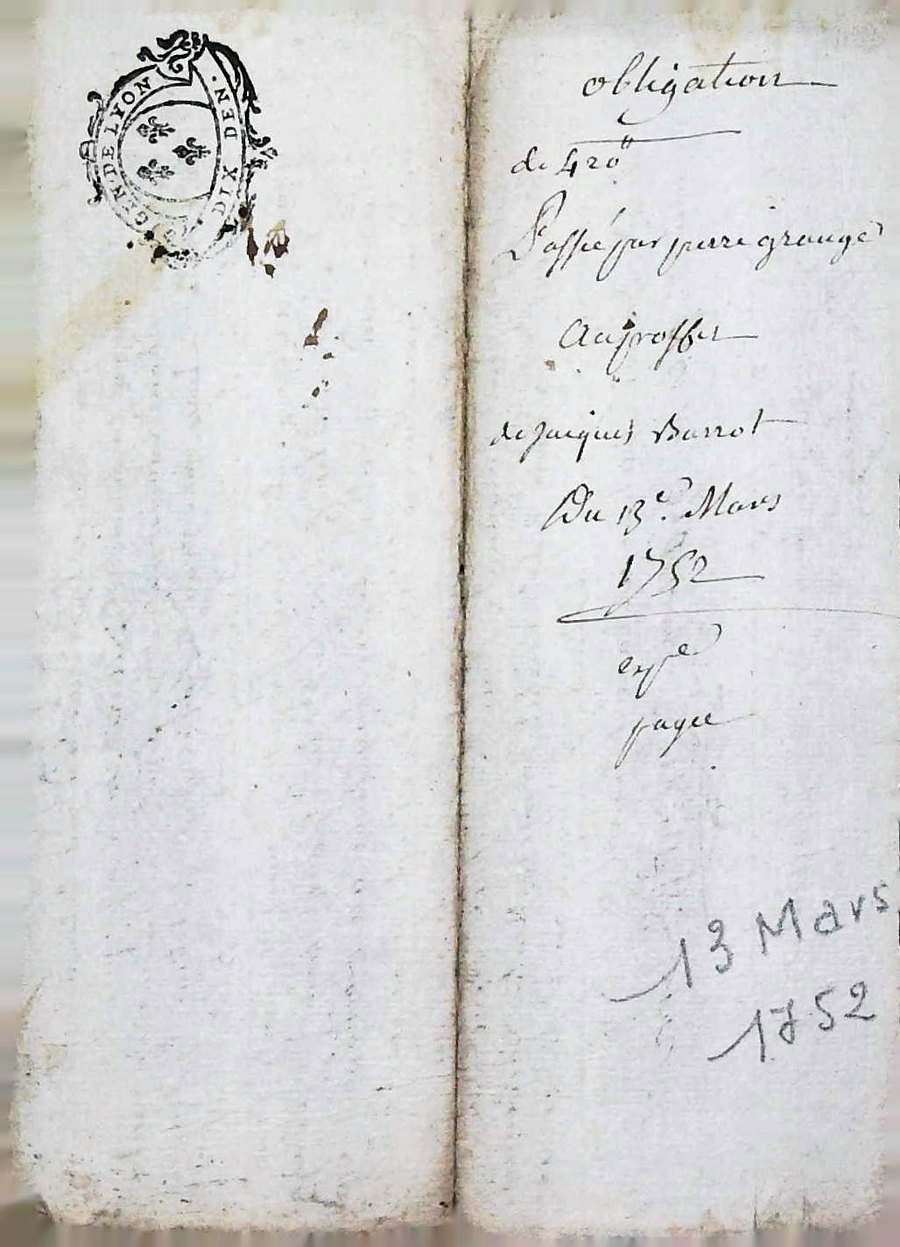 GEN. DE LYON
DIX DEN.
obligation
de 420ᵗᵗ
Passée par pierre grange
Au proffit
de Jacques Barrot
Du 13ᵉ. Mars
1752
expᵉᵉ
payee
13 Mars
1752